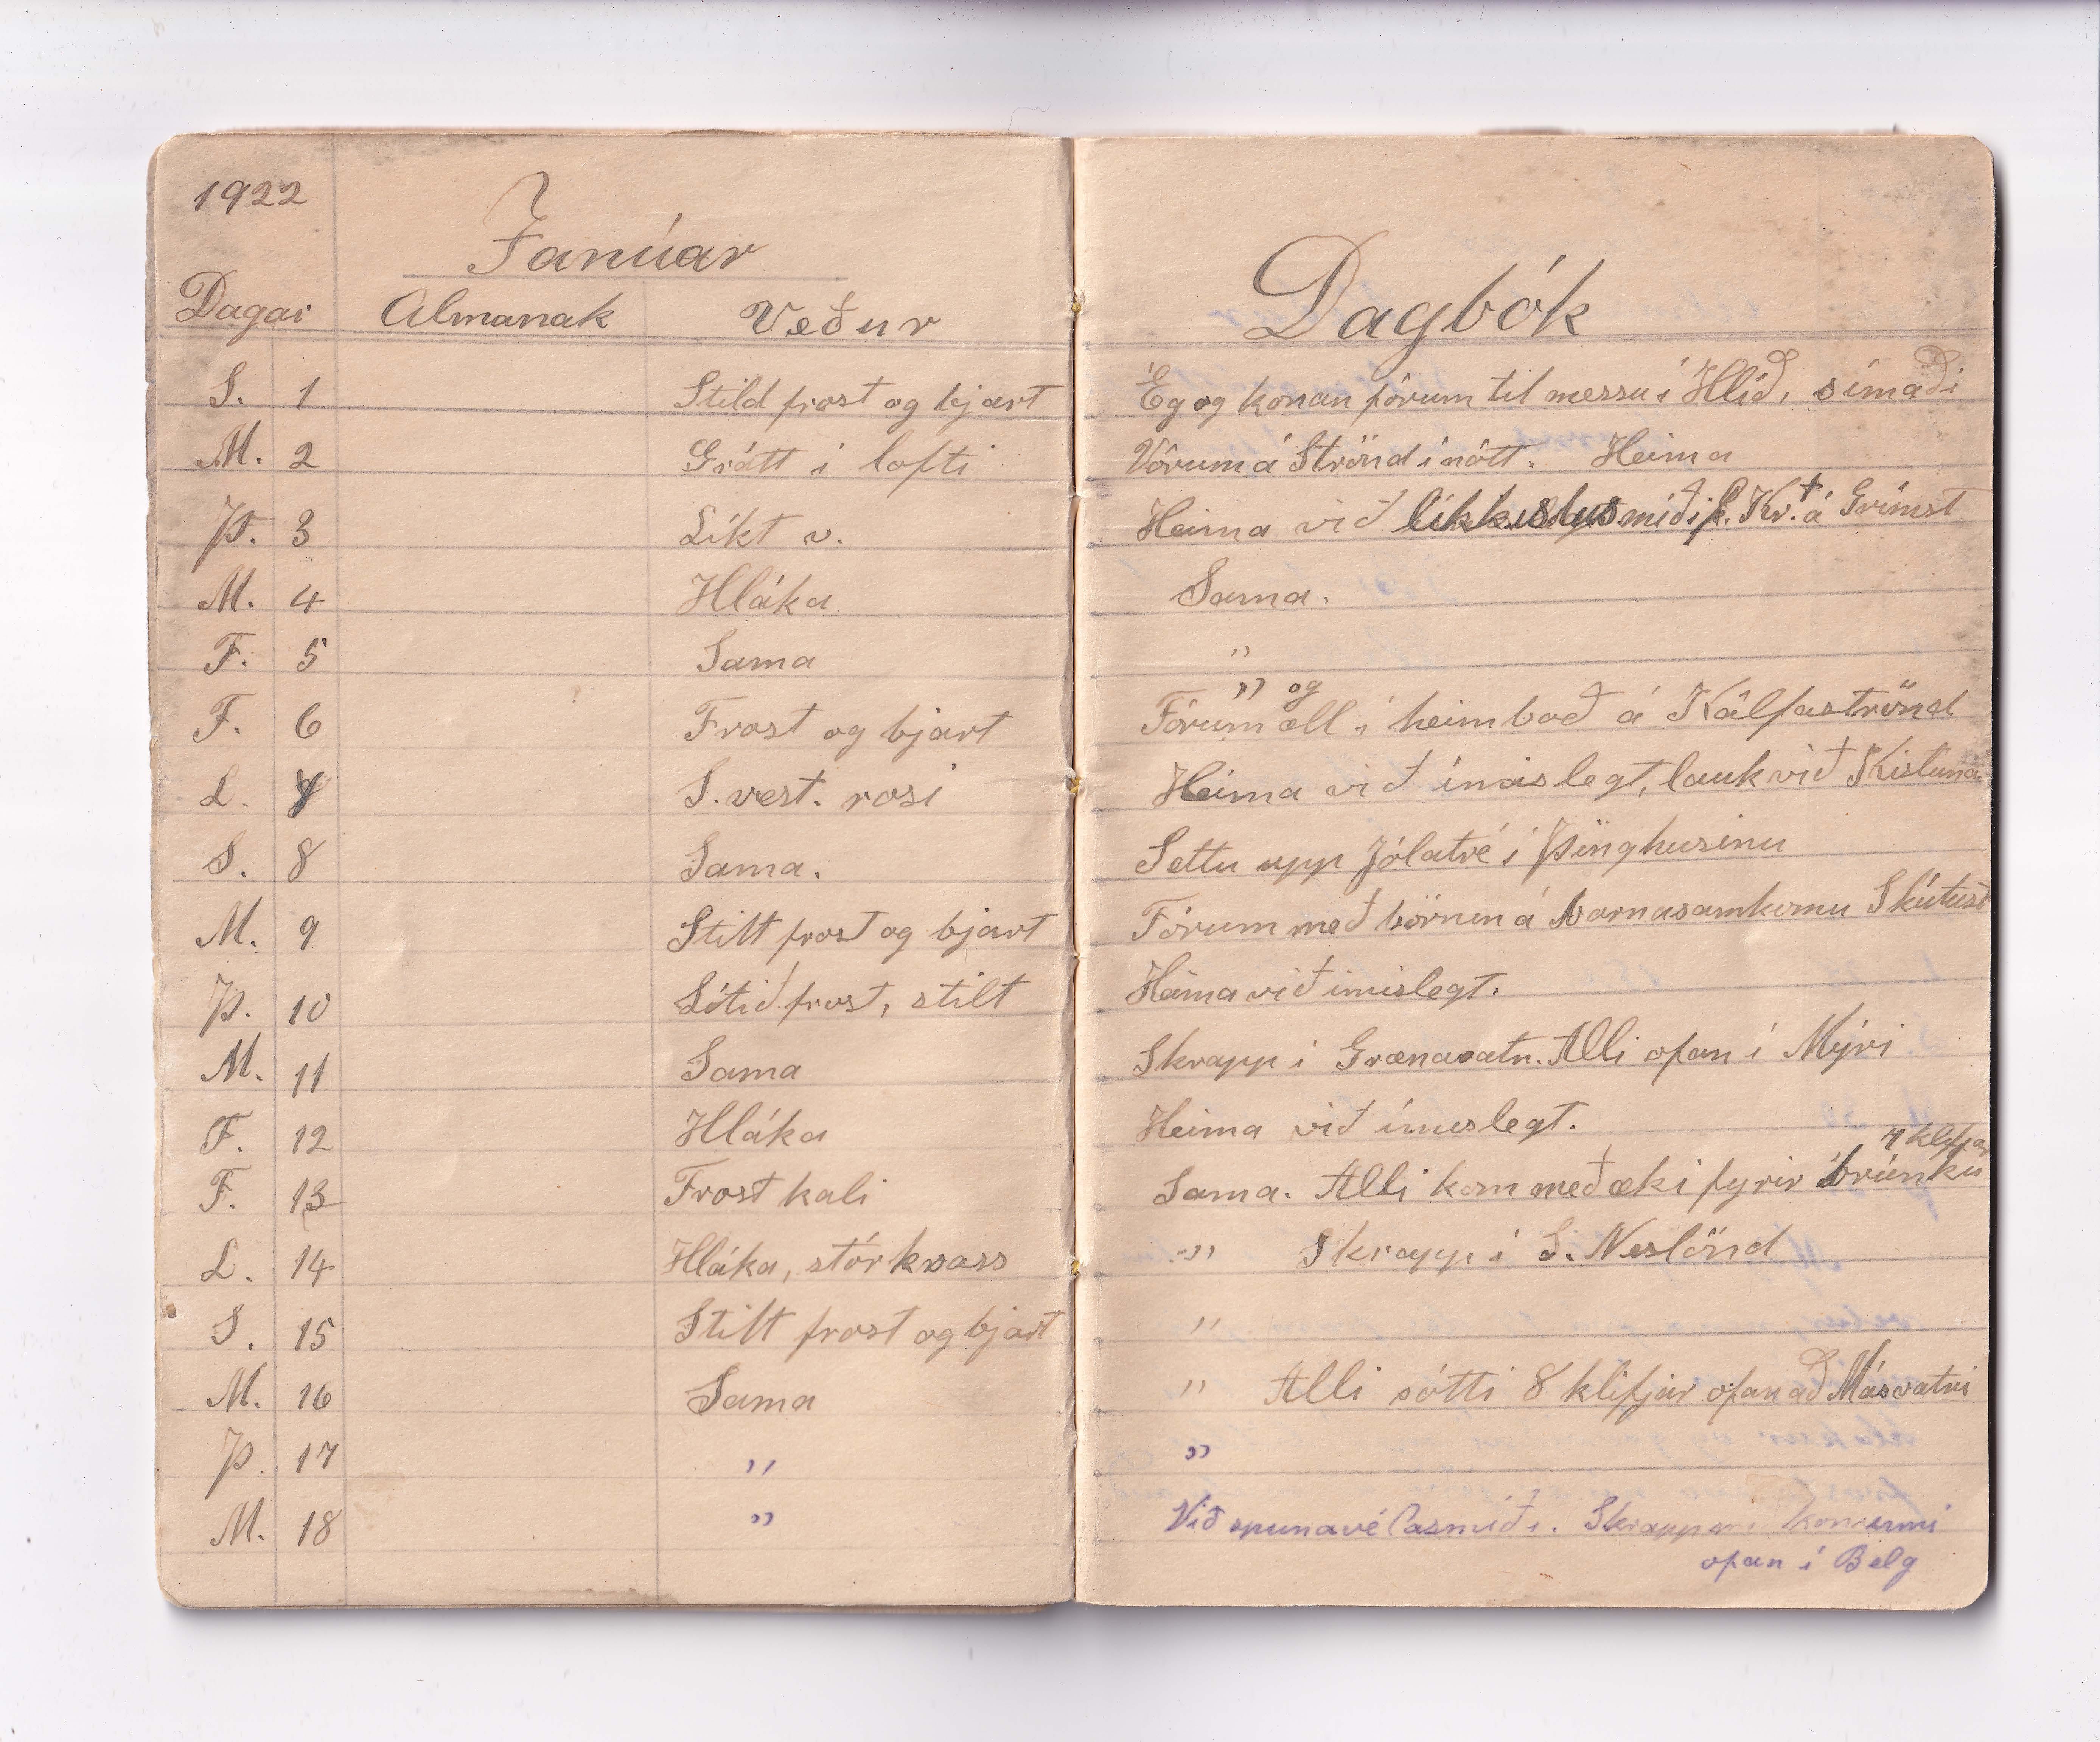 1922
Janúar
Dagar Almanak Veður
S. 1 Stild frost og bjart
M. 2 Grátt í lofti
Þ. 3 Líkt v.
M. 4 Hláka
F. 5 Sama
F. 6 Frost og bjart
L. 7 S. vest. rosi
S. 8 Sama.
M. 9 Stilt frost og bjart
Þ. 10 Lítið frost, stilt
M. 11 Sama
F. 12 Hláka
F. 13 Frost kali
L. 14 Hláka, stórkvass
S. 15 Stilt frost og bjart
M. 16 Sama
Þ. 17 ,,
M. 18 ,,
Dagbók
Ég og konan fórum til messu í Hlíð, símaði
Vórum á Strönd í nótt. Heima
Heima við líkkistusmíði Kr.† á Grímst
Sama.
,,
,, og
Fórum öll í heimboð á Kálfaströnd
Heima við ímislegt, lauk við Kistuna
Settu upp Jólatré í Þinghusinu
Fórum með börnin á barnasamkomu Skútust
Heima við imislegt.
Skrapp í Grænavatn. Alli ofan í Mýri
Heima við ímislegt.
4 klifjar
Sama. Alli kom með æki fyrir brúnku
,, Skrapp í S. Neslönd
,,
,, Alli sótti 8 klifjar ofan að Másvatni
,,
Við spunavélasmíði. Skrapp konunni
ofan í Belg